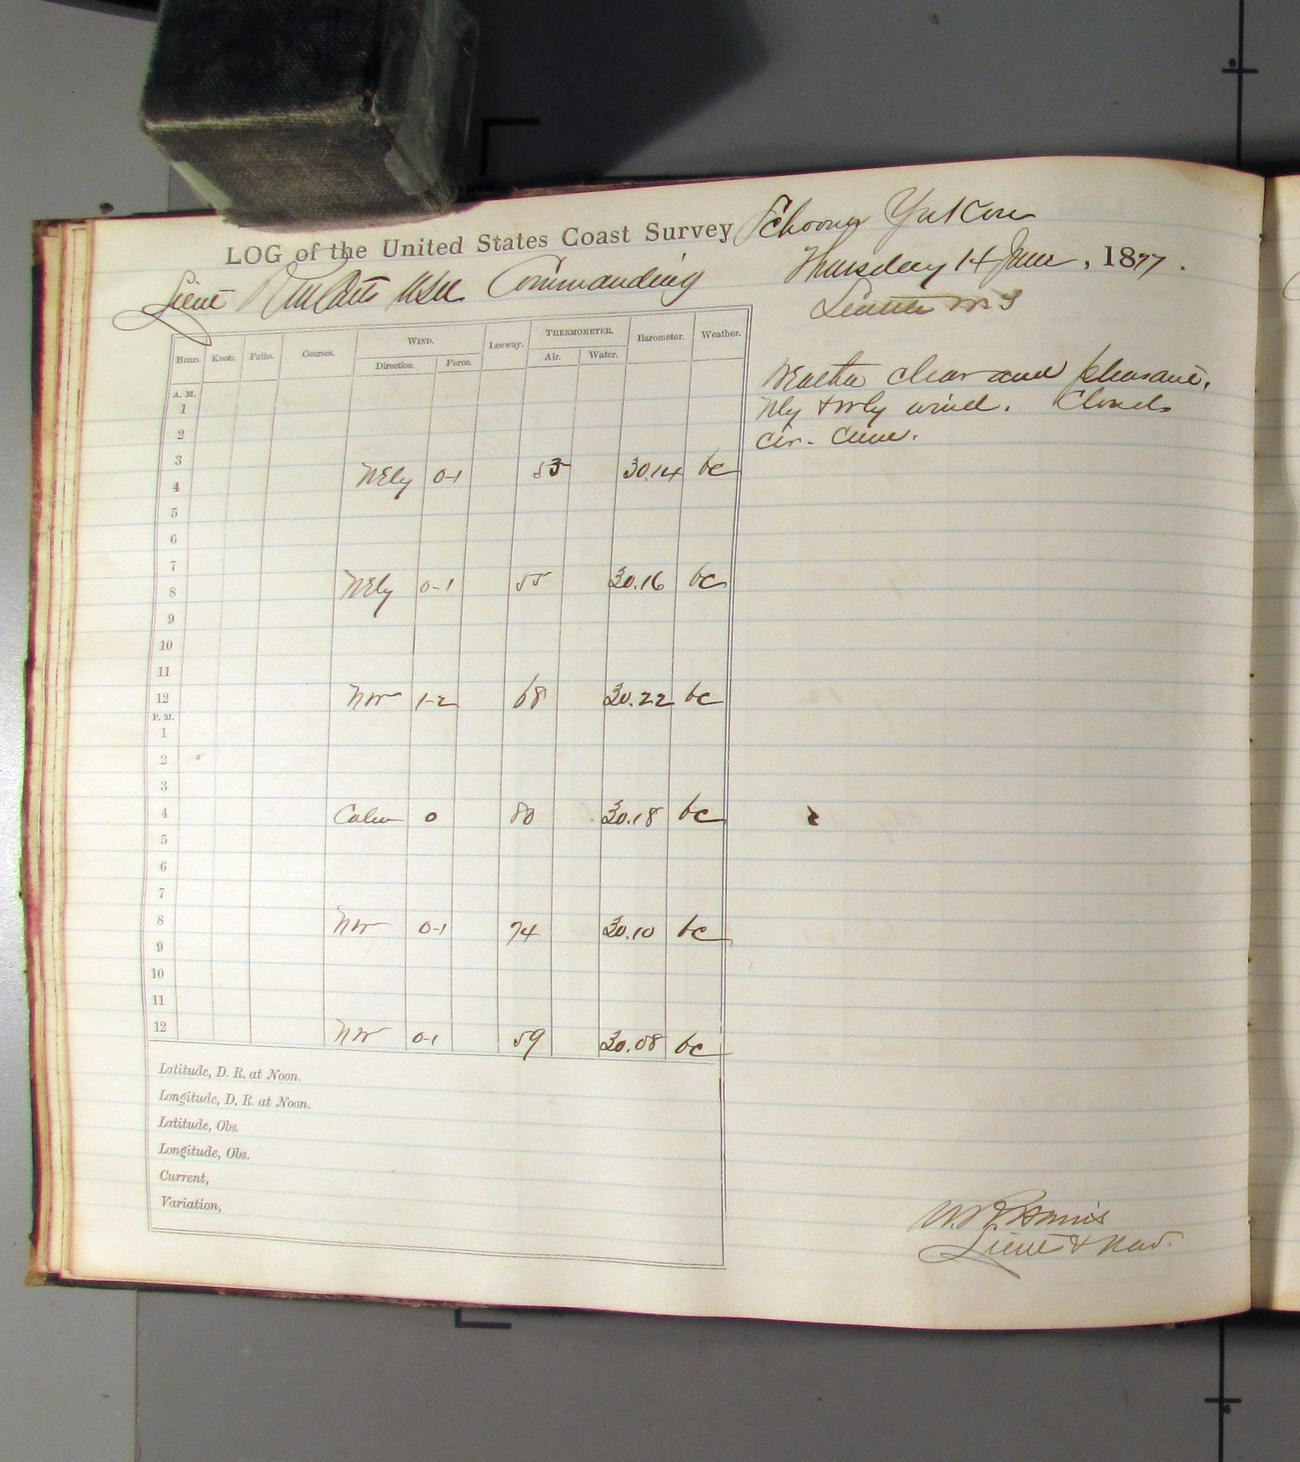 LOG of the United States Coast Survey Schooner Yukon
Lieut Commanding
Thursday 14 June, 1877.
Seattle W. T
Hours. Knots. Faths. Courses. WIND. Leeway. THERMOMETER. Barometer. Weather.
Direction Force. Air. Water.
A. M.
1
2
3
4 NEly 0-1 53 30.14 bc
5
6
7
8 NEly 0-1 55 30.16 bc
9
10
11
12 NW 1-2 68 30.22 bc
P. M.
1
2
3
4 Calm 0 80 30.18 bc
5
6
7
8 NW 0-1 74 30.10 bc
9
10
11
12 NW 0-1 59 30.08 bc
Weather clear and pleasant.
Nly & Wly wind. Clouds
cir. cum.
Latitude, D. R. at Noon.
Longitude, D. R. at Noon.
Latitude, Obs.
Longitude, Obs.
Current,
Variation,
Lieut & Nav.